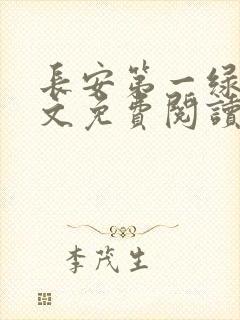 長安第一綠
文免費閱讀
李茂生